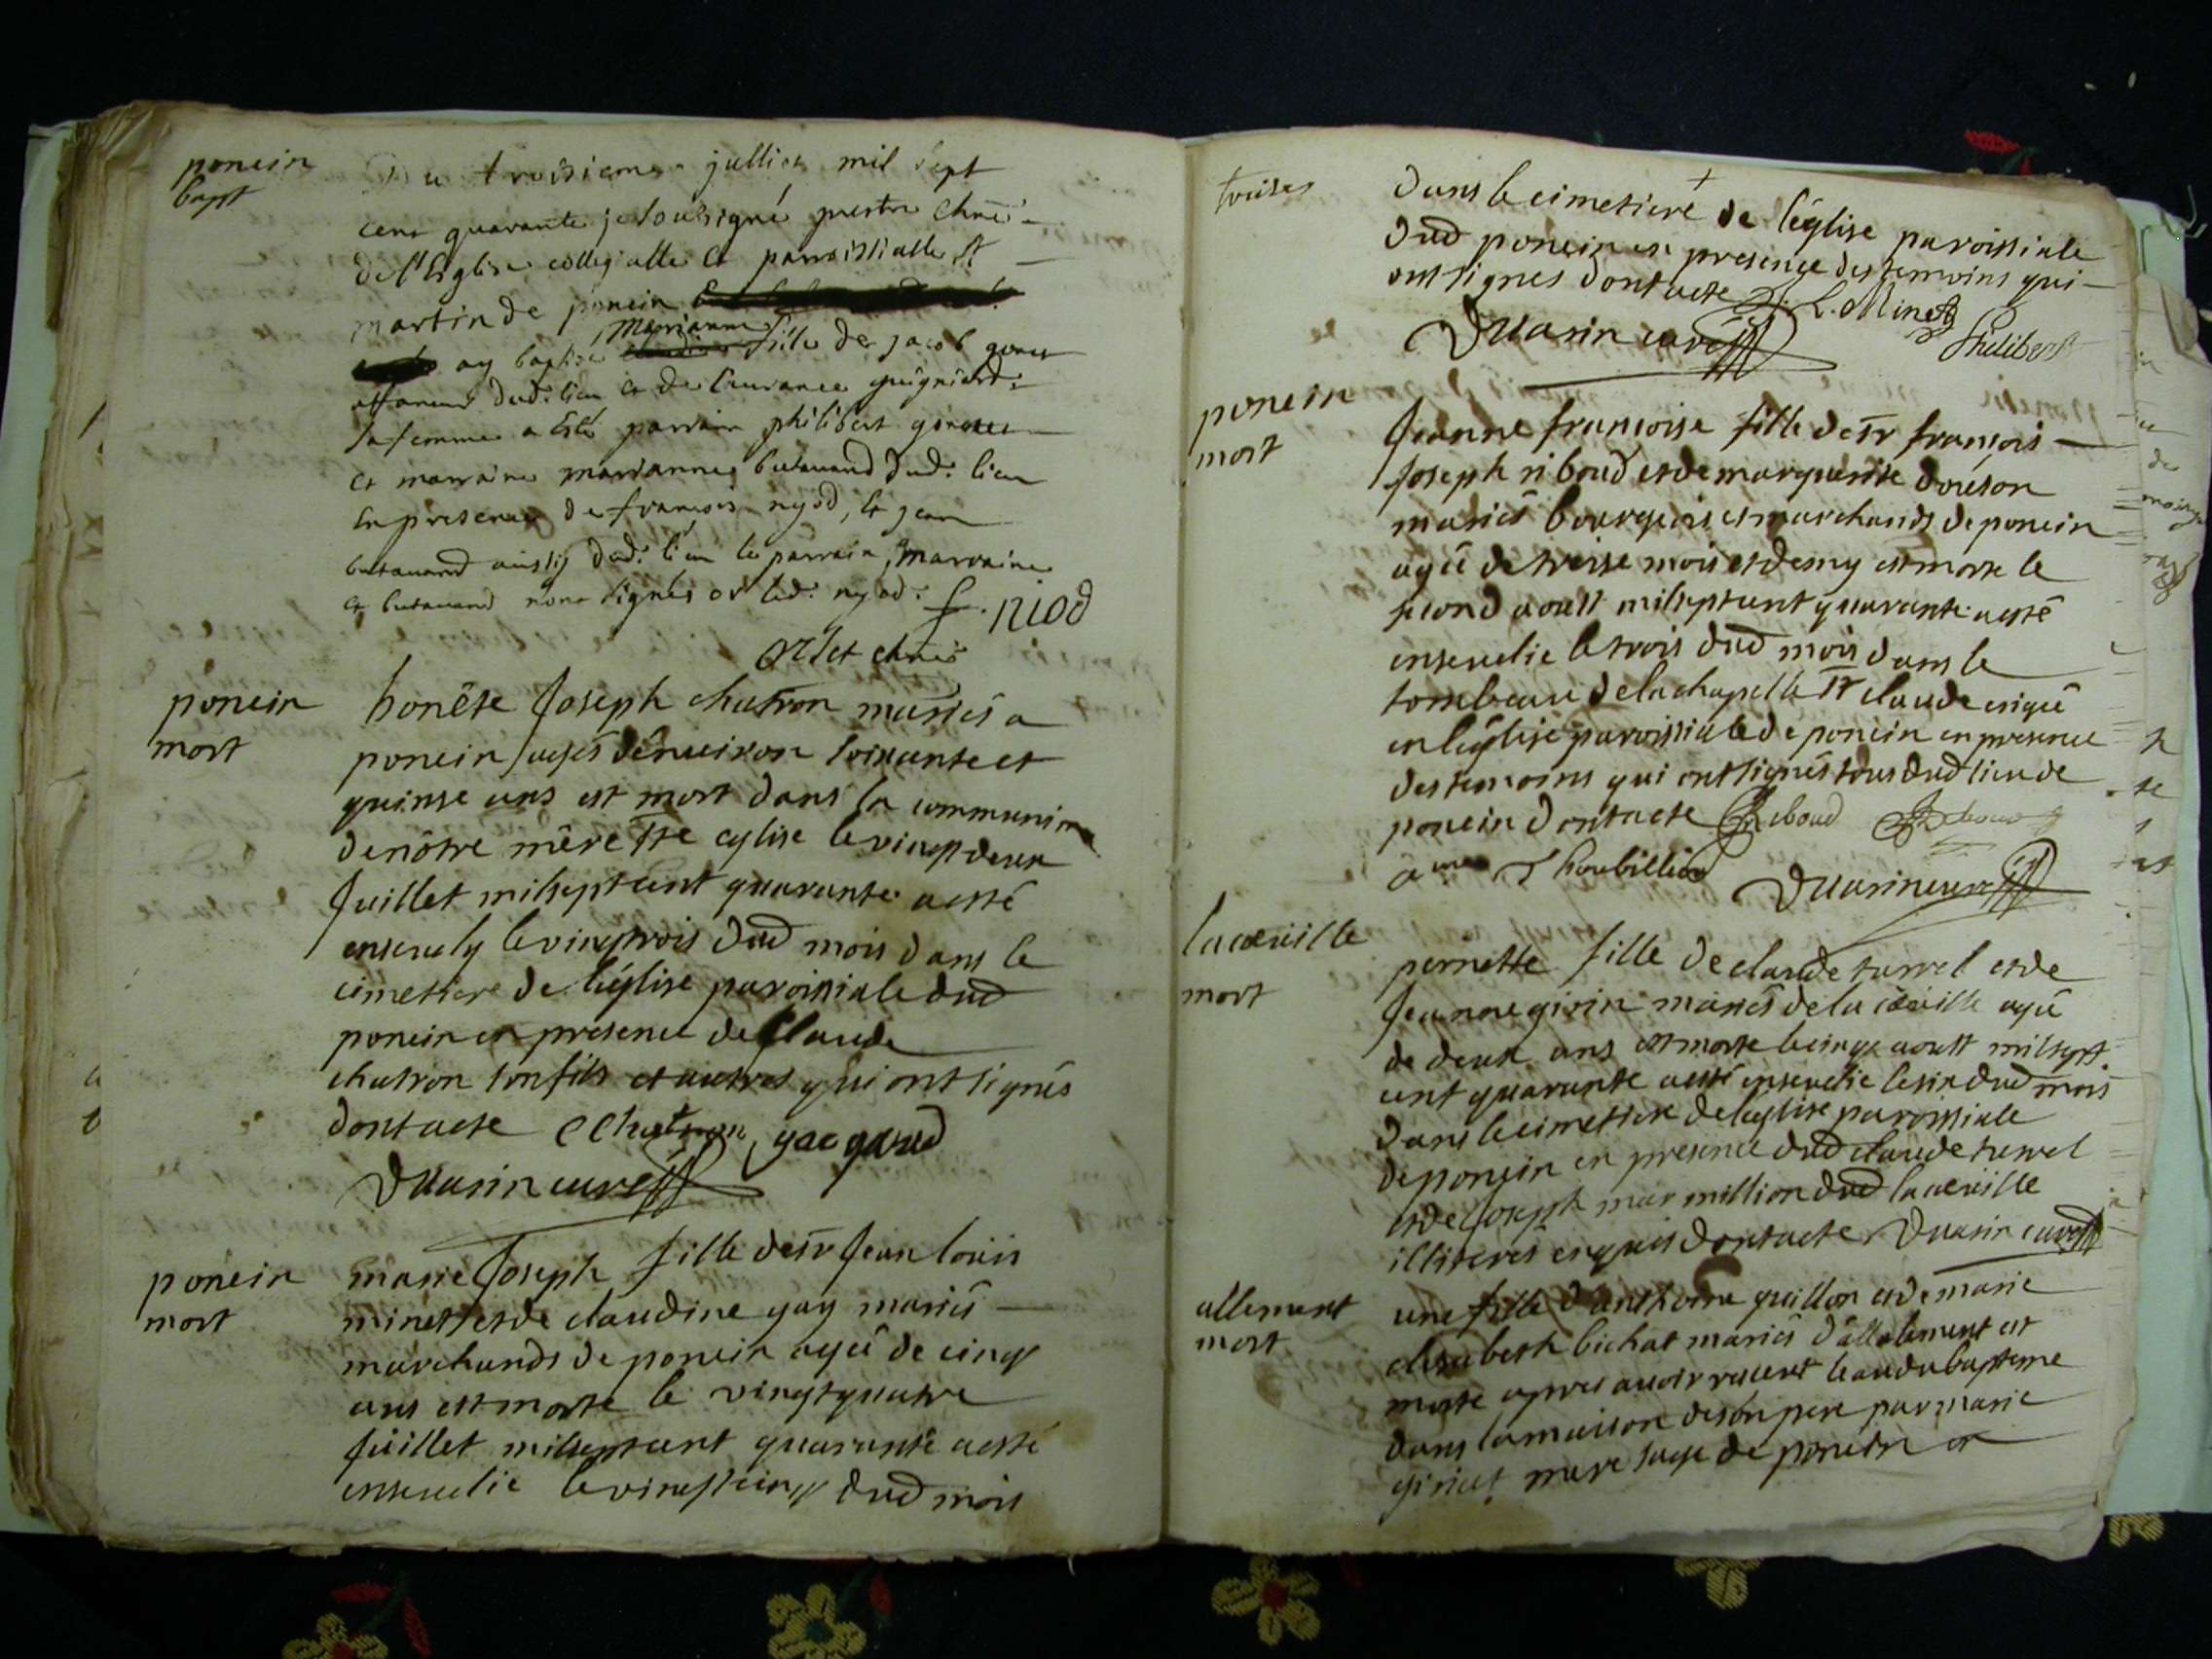 ponein
bapt
Du troisieme juillet mil sept
cent quarante je soubsigné prestre chne
de l'Eglise collegialle et parroissialle St
martin de ponein
ay baptisé marianne fille de jacob
dud: lieu et de laurance guigniard:
sa femme a esté parrain philibert
et marraine marianne butavand dud: lieu
en presence de francois nyod, et jean
butavand aussy dud: lieu le parrain, marraine
et butavand non signés or led: nyod: f. niod
orset chne
ponein
mort
honéte Joseph chatron mariés a
ponein agés dénuiron soixante et
quinse ans est mort dans la communion
de nôtre mére ste eglise le vingtdeux
Juillet milseptcent quarante a esté
enseuely le vingtrois dud mois dans le
cimetiere de léglise paroissiale dud
ponein en présence de Claude
chatron son fils et autres qui ont signés
dont acte C Chatron jacquand
Duasin curé
ponein
mort
marie Joseph fille de sr Jean loüis
minet et de claudine gay mariés
marchands de ponein agée de cinq
ans est morte le vingtquatre
Juillet milseptcent quarante a esté
enseuelie le vingtcinq dud mois
dans le cimetiere de léglise paroissiale
dud ponein en presence des temoins qui
ont signes dont acte J. L. Minet
Duasin curé Philibert
ponein
mort
Jeanne francoise fille de sr françois
Joseph riboud et de marguerite
mariés bourgeois et marchands de ponein
agée de treise mois et demy est morte le
second aoust milseptcent quarante a esté
enseuelie le trois dud mois dans le
tombeau de la chapelle st claude erigée
en léglise paroissiale de ponein en presence
des temoins qui ont signés tous dud lieu de
ponein dont acte Riboud
Duasin curé
la cueille
mort
pernette fille de claude turrel et de
Jeanne girin mariés de la cueille agée
de deux ans est morte le cinq aoust milsept
cent quarante a esté enseuelie le six dud mois
dans le cimetiere de léglise paroissiale
de ponein en presence dud claude turrel
et de Joseph marmillion dud la cueille
illiteres enquis dont acte Duasin curé
allement
mort
une fille d'anthoine guillon et de marie
elisabeth bichat mariés d'allement est
morte apres auoir receut leau du bapteme
dans la maison de son pere par marie
giriat mere sage de ponein en